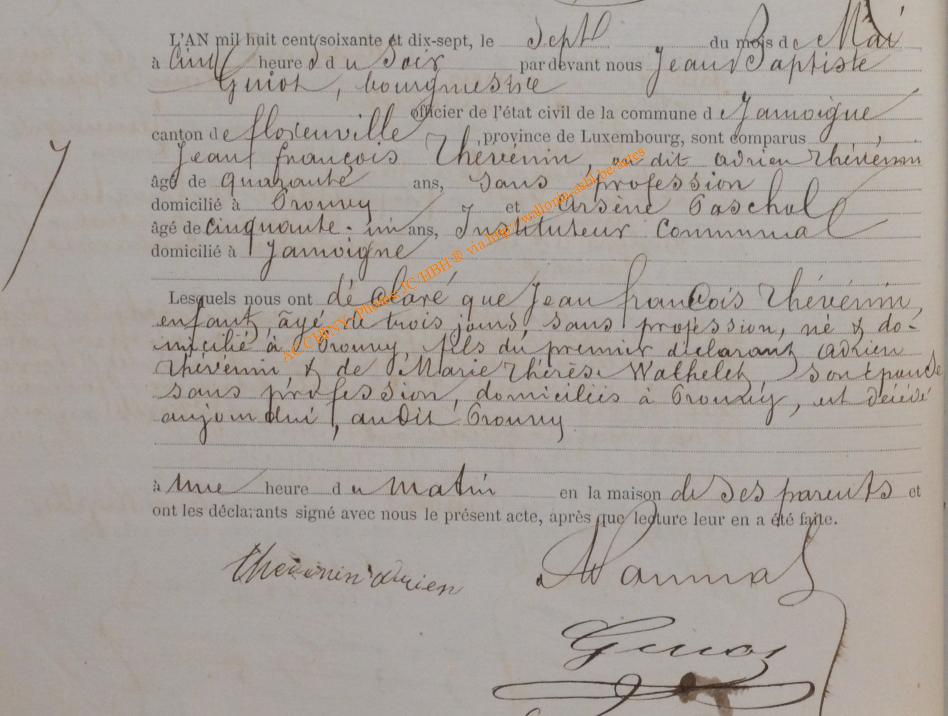 L'AN mil huit cent soixante et dix-sept, le sept du mois de Mai
à cinq heures du soir par devant nous Jean Baptiste
Guiot, bourgmestre
officier de l'état civil de la commune de Jamoigne
canton de florenville, province de Luxembourg, sont comparus
7
Jean françois Thévénin, ou dit adrien Thévénin
âgé de quarante ans, sans profession
domicilié à Prouvy et Arsène Paschal
âgé de cinquante-un ans, Instituteur Communal
domicilié à Jamoigne
Lesquels nous ont déclaré que Jean françois Thévénin,
enfant, âgé de trois jours, sans profession, né & do-
micilié à Prouvy, fils du premier déclarant adrien
Thévénin & de Marie Thérèse Wathelet, son épouse
sans profession, domiciliés à Prouvy, est décédé
aujourdui, audit Prouvy
à une heure du matin en la maison de ses parents et
ont les déclarants signé avec nous le présent acte, après que lecture leur en a été faite.
Thevenin adrien
Guiot